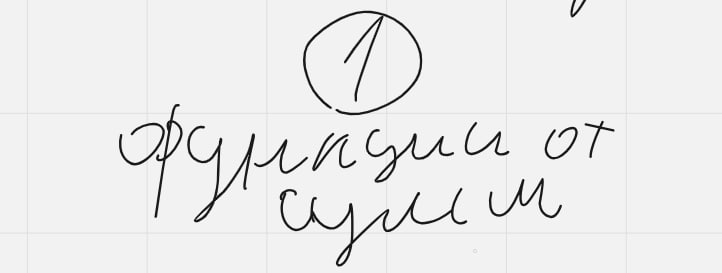 1
функции от
сумм